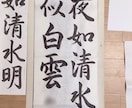 夜如清水
似白雲
如清水明